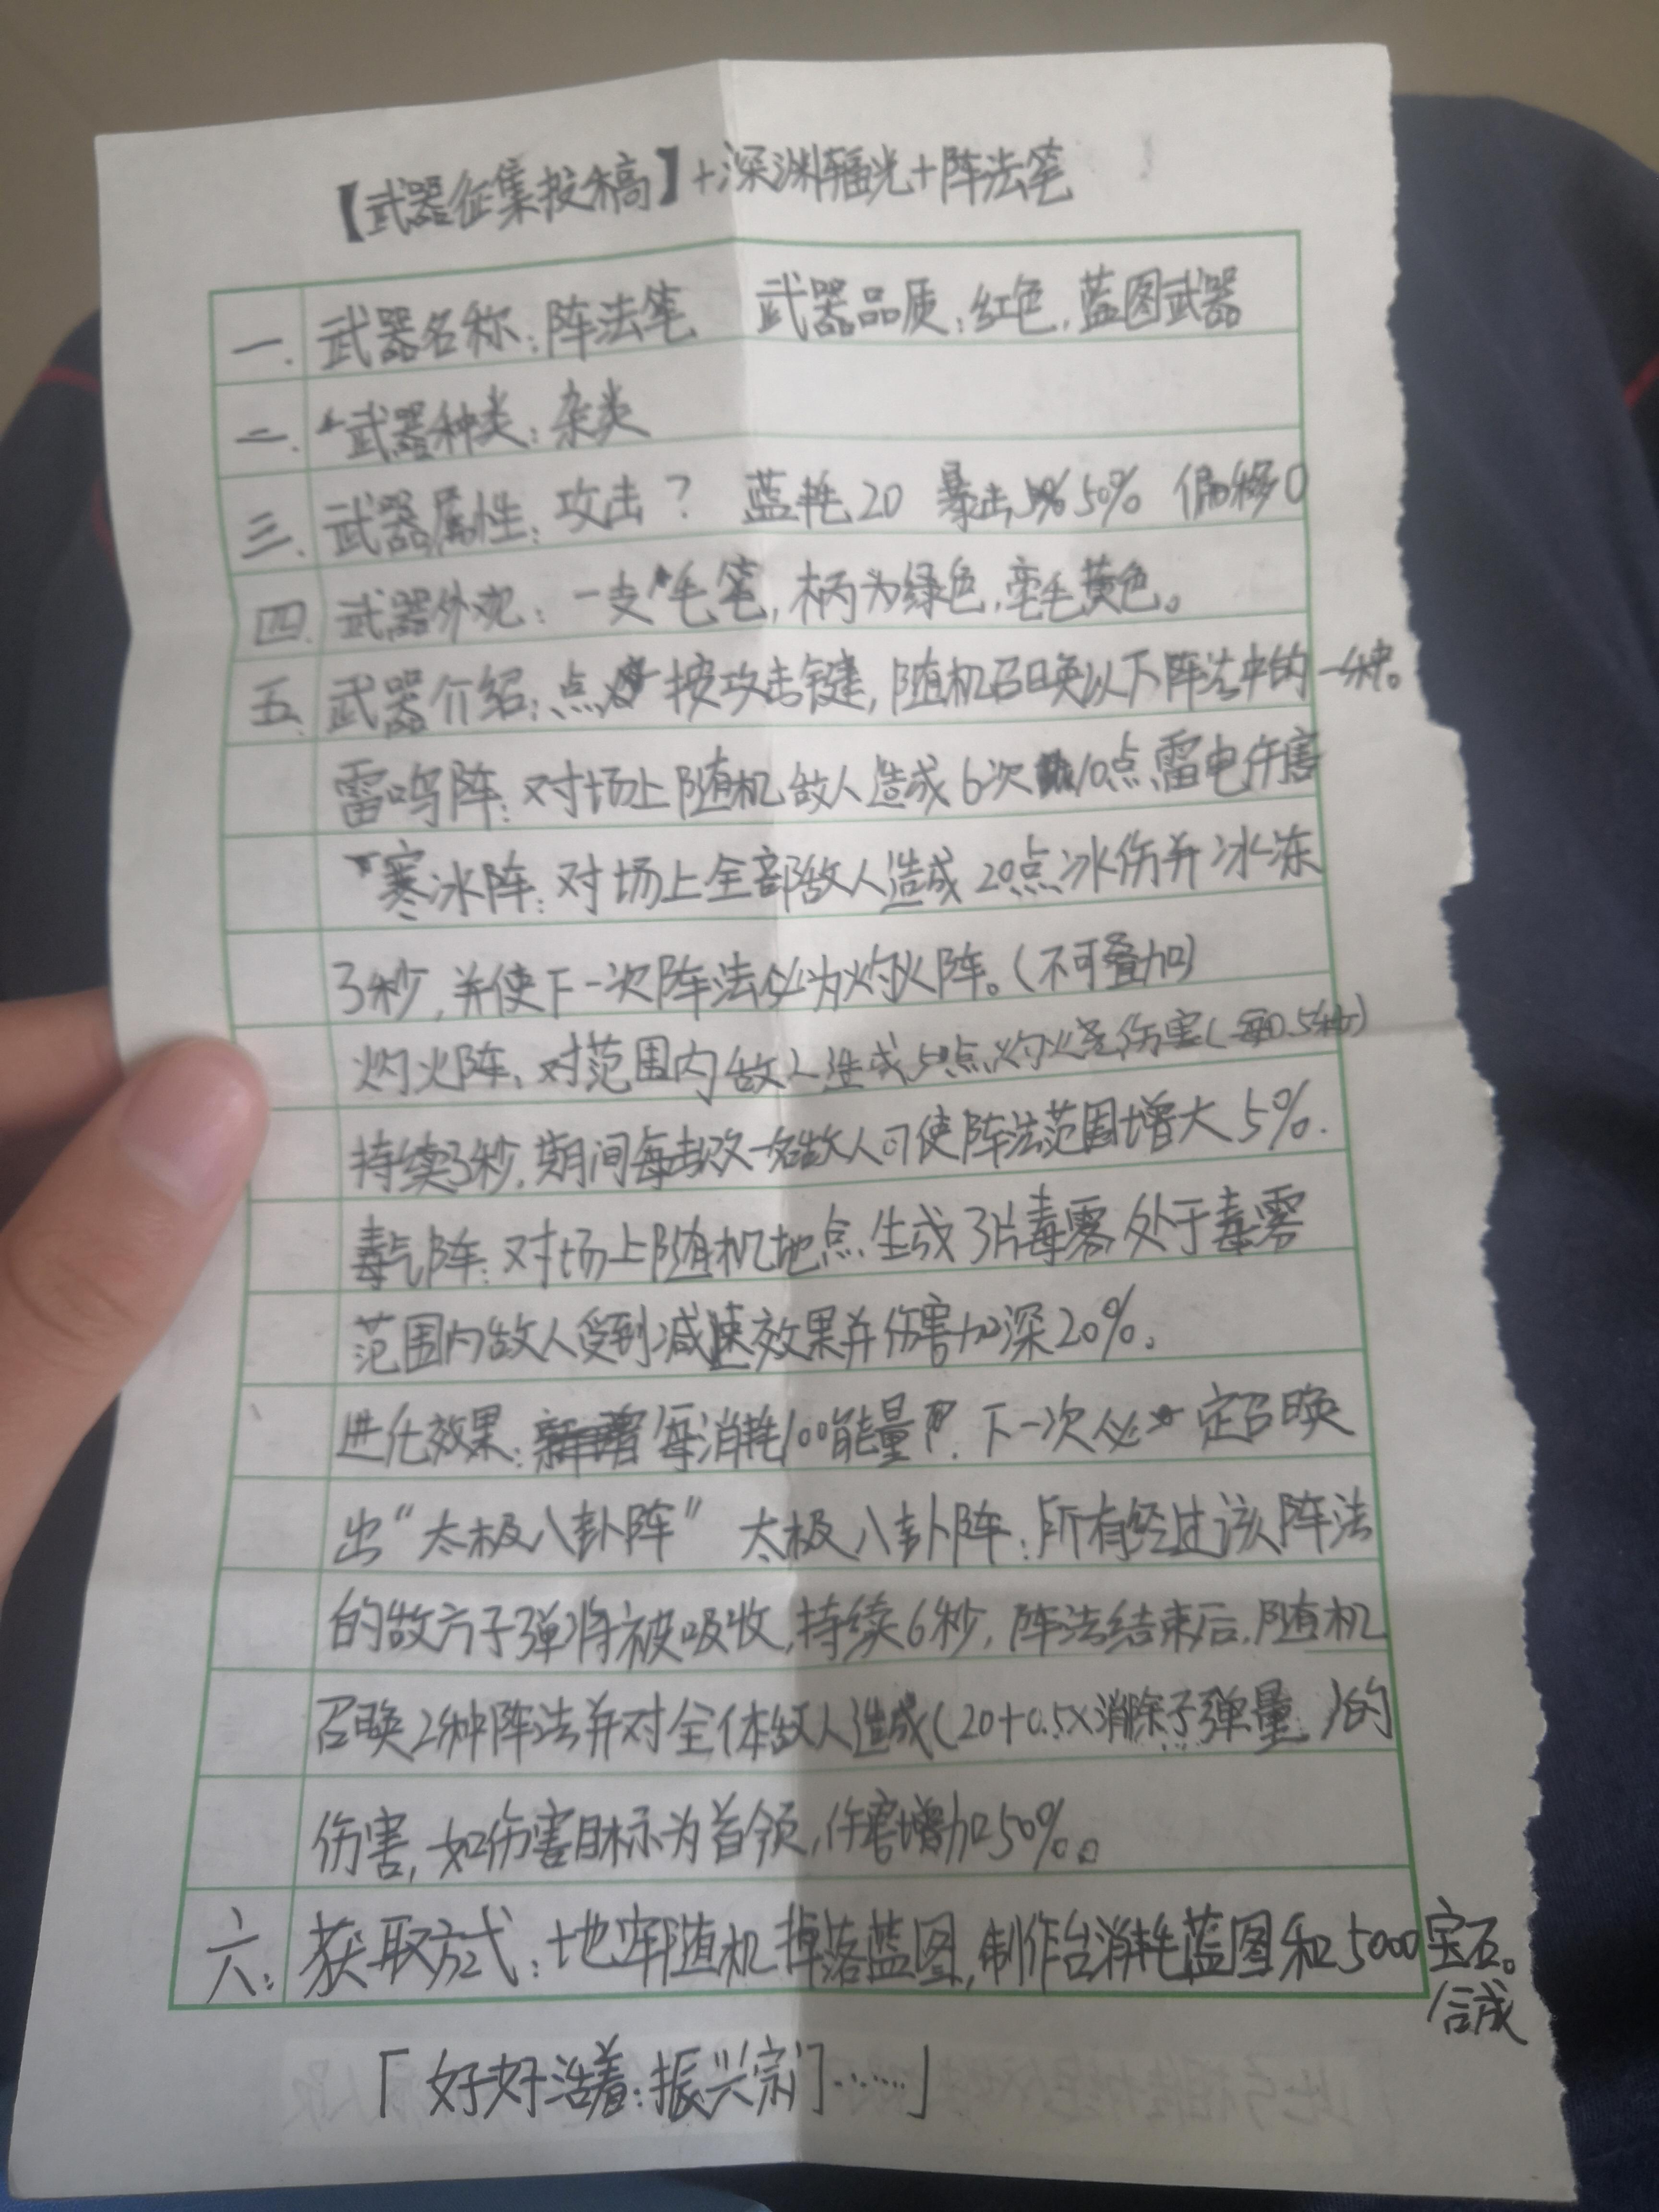 【武器征集投稿】+深渊辐光+阵法笔
一. 武器名称：阵法笔 武器品质：红色，蓝图武器
二. 武器种类：杂类
三. 武器属性：攻击？ 蓝耗20 暴击50% 偏移0
四. 武器外观：一支毛笔，柄为绿色，毛黄色。
五. 武器介绍：点按攻击键，随机召唤以下阵法中的一种。
雷鸣阵：对场上随机敌人造成6次10点雷电伤害
寒冰阵：对场上全部敌人造成20点冰伤并冰冻
3秒，并使下一次阵法必为灼火阵。（不可叠加）
灼火阵：对范围内敌人造成5点灼烧伤害（每0.5秒）
持续3秒，期间每击败一名敌人可使阵法范围增大5%.
毒气阵：对场上随机地点生成3片毒雾，处于毒雾
范围内敌人受到减速效果并伤害加深20%。
进化效果：每消耗100能量，下一次必定召唤
出“太极八卦阵” 太极八卦阵：所有经过该阵法
的敌方子弹将被吸收，持续6秒，阵法结束后，随机
召唤2种阵法并对全体敌人造成（20+0.5×消除子弹量）的
伤害，如伤害目标为首领，伤害增加50%。
六. 获取方式：地牢随机掉落蓝图，制作台消耗蓝图和5000宝石。
合成
「好好活着：振兴宗门……」